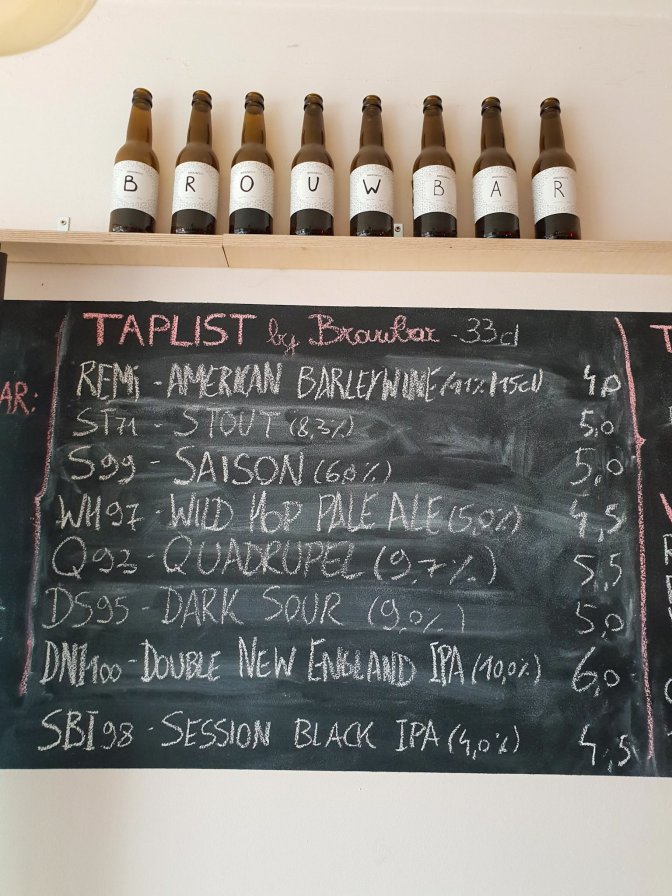 B R O U W B A R
TAPLIST by Brouwbar - 33cl
AR:
REM1 - AMERICAN BARLEYWINE (11%) 15cl 4,0
ST71 - STOUT (8,3%) 5,0
S99 - SAISON (6,0%) 5,0
WH97 - WILD HOP PALE ALE (5,0%) 4,5
Q92 - QUADRUPEL (9,7%) 5,5
DS95 - DARK SOUR (9,0%) 5,0
DNI100 - DOUBLE NEW ENGLAND IPA (10,0%) 6,0
SBI98 - SESSION BLACK IPA (4,0%) 4,5